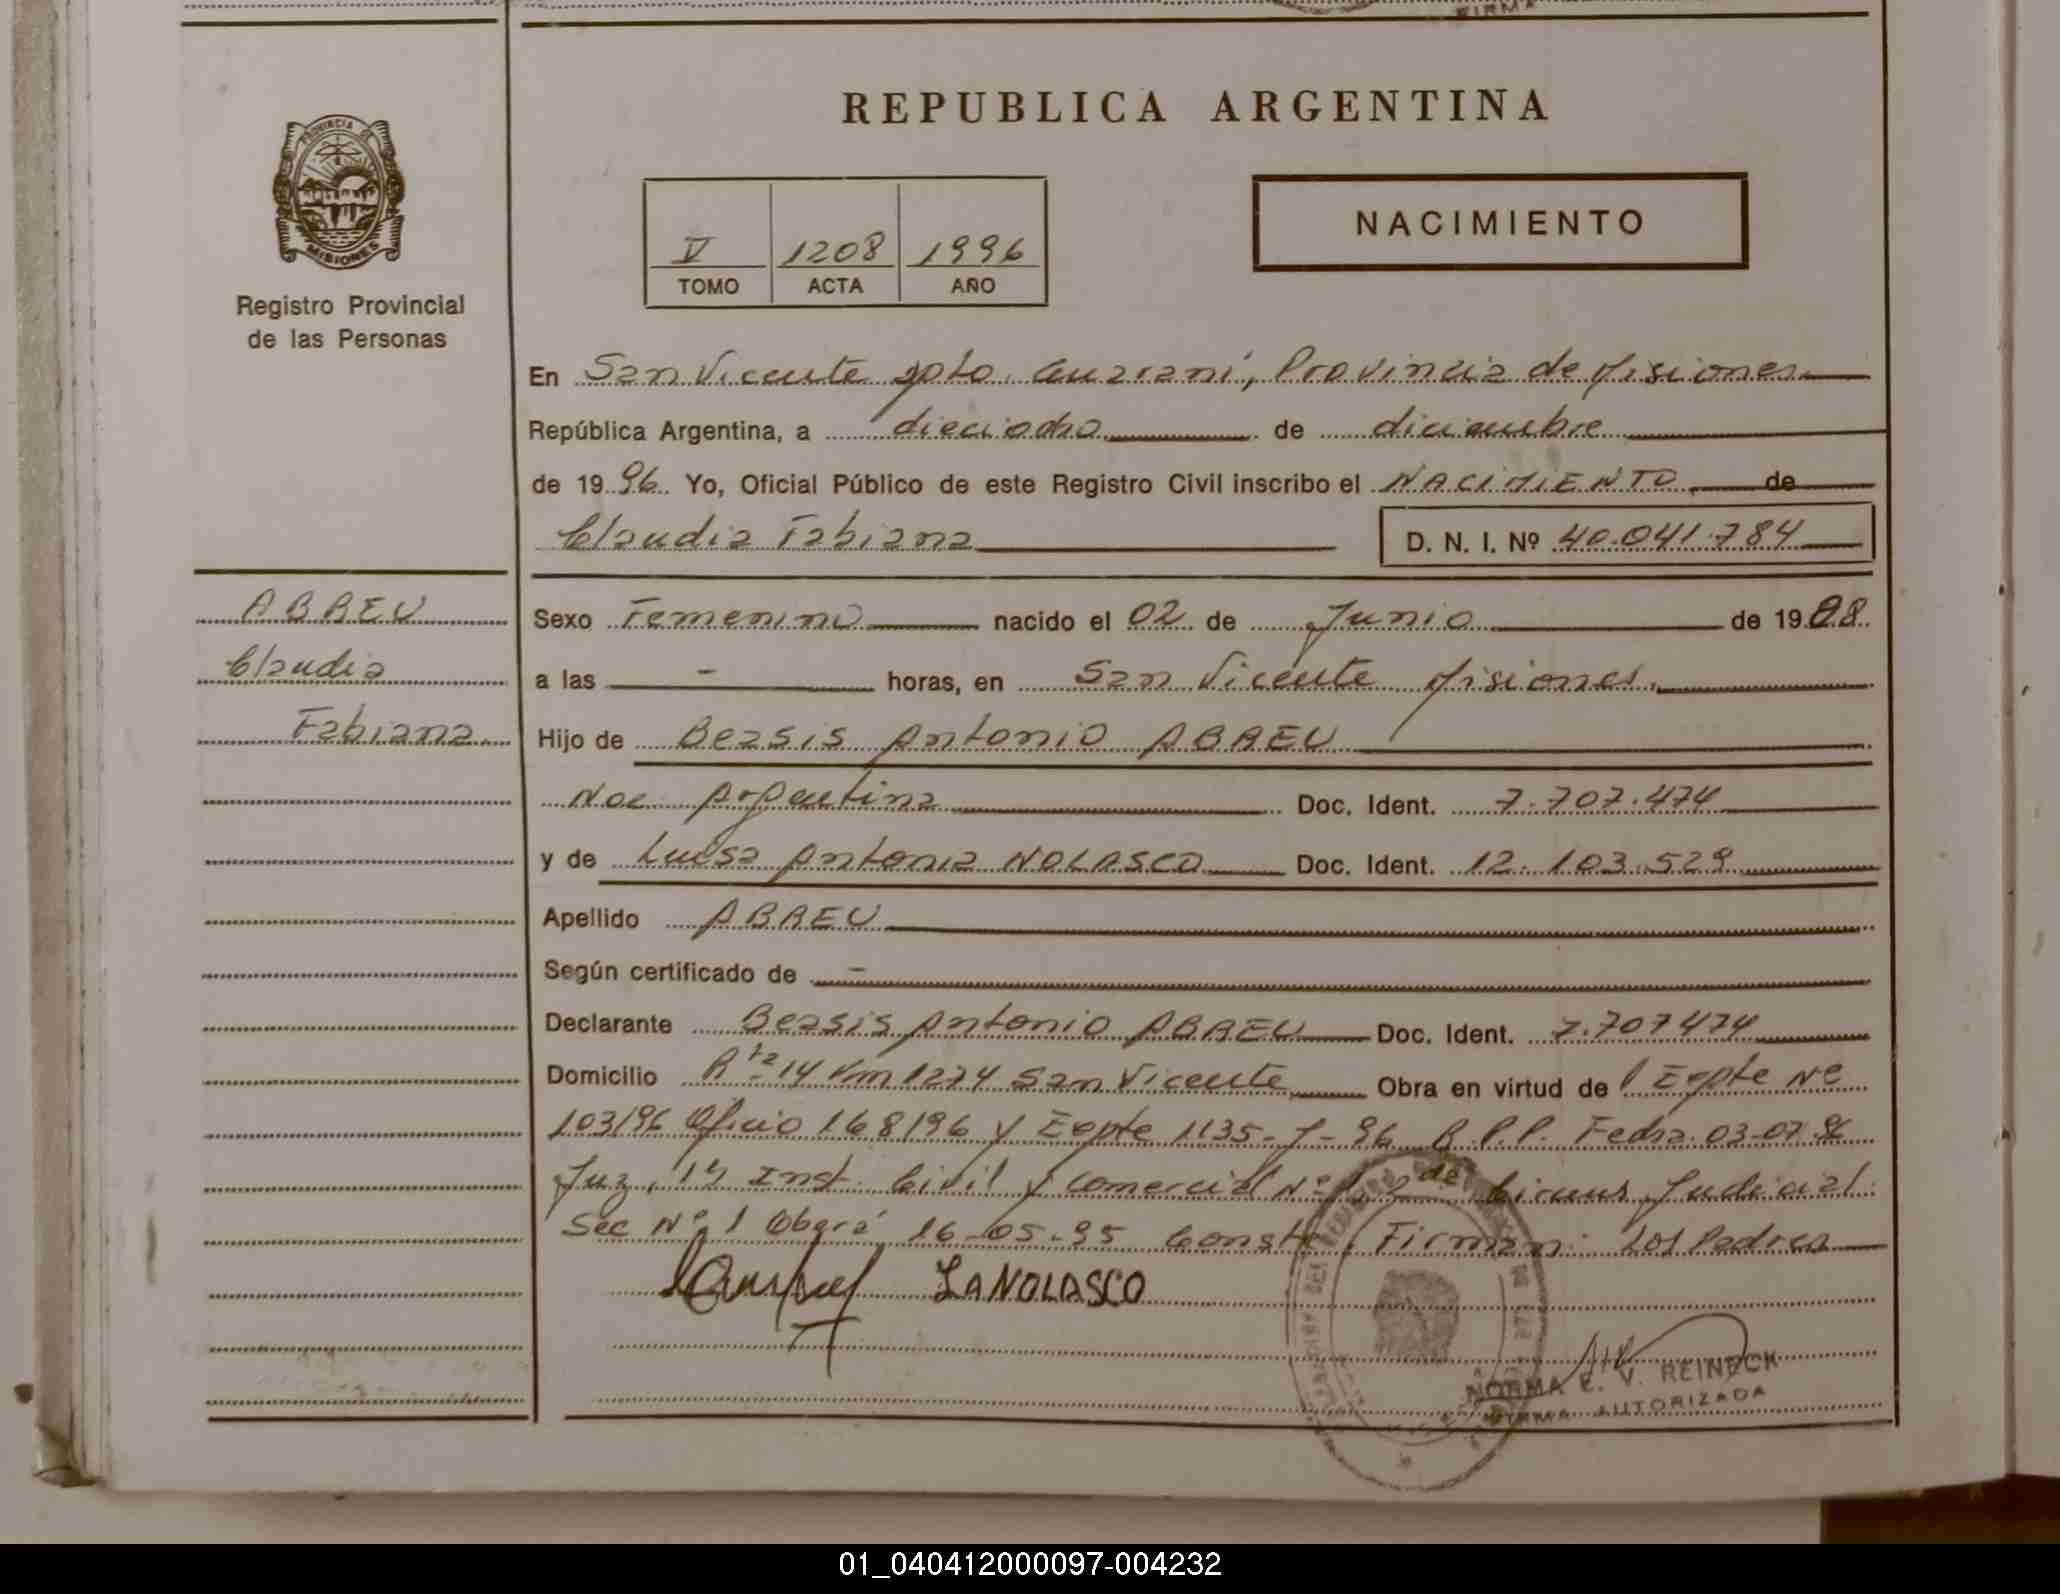 REPUBLICA ARGENTINA
PROVINCIA DE
MISIONES
Registro Provincial
de las Personas
V 1208 1996
TOMO ACTA AÑO
NACIMIENTO
En San Vicente Dpto. Guaraní, Provincia de Misiones
República Argentina, a dieciocho de diciembre
de 1996. Yo, Oficial Público de este Registro Civil inscribo el NACIMIENTO, de
Claudia Fabiana D. N. I. Nº 40.041.784
ABREU
Claudia
Fabiana
Sexo Femenino nacido el 02 de Junio de 1988
a las - horas, en San Vicente Misiones.
Hijo de Beasis Antonio ABREU
Nac. Argentina Doc. Ident. 7.707.474
y de Luisa Antonia NOLASCO Doc. Ident. 12.103.529
Apellido ABREU
Según certificado de -
Declarante Beasis Antonio ABREU Doc. Ident. 7.707474
Domicilio Rta 14 Km 1274 San Vicente Obra en virtud de Expte Nº
103/96 Oficio 168/96 y Expte 1135-J-96 R.P.P. Fecha 03-07-96
Juz. 1ª Inst. Civil y Comercial Nº 2da Circuns. Judicial
Sec Nº 1 Oberá 16-05-95 Conste. Firman: Los Padres
LA NOLASCO
NORMA E. V. REINECK
FIRMA AUTORIZADA
01_040412000097-004232